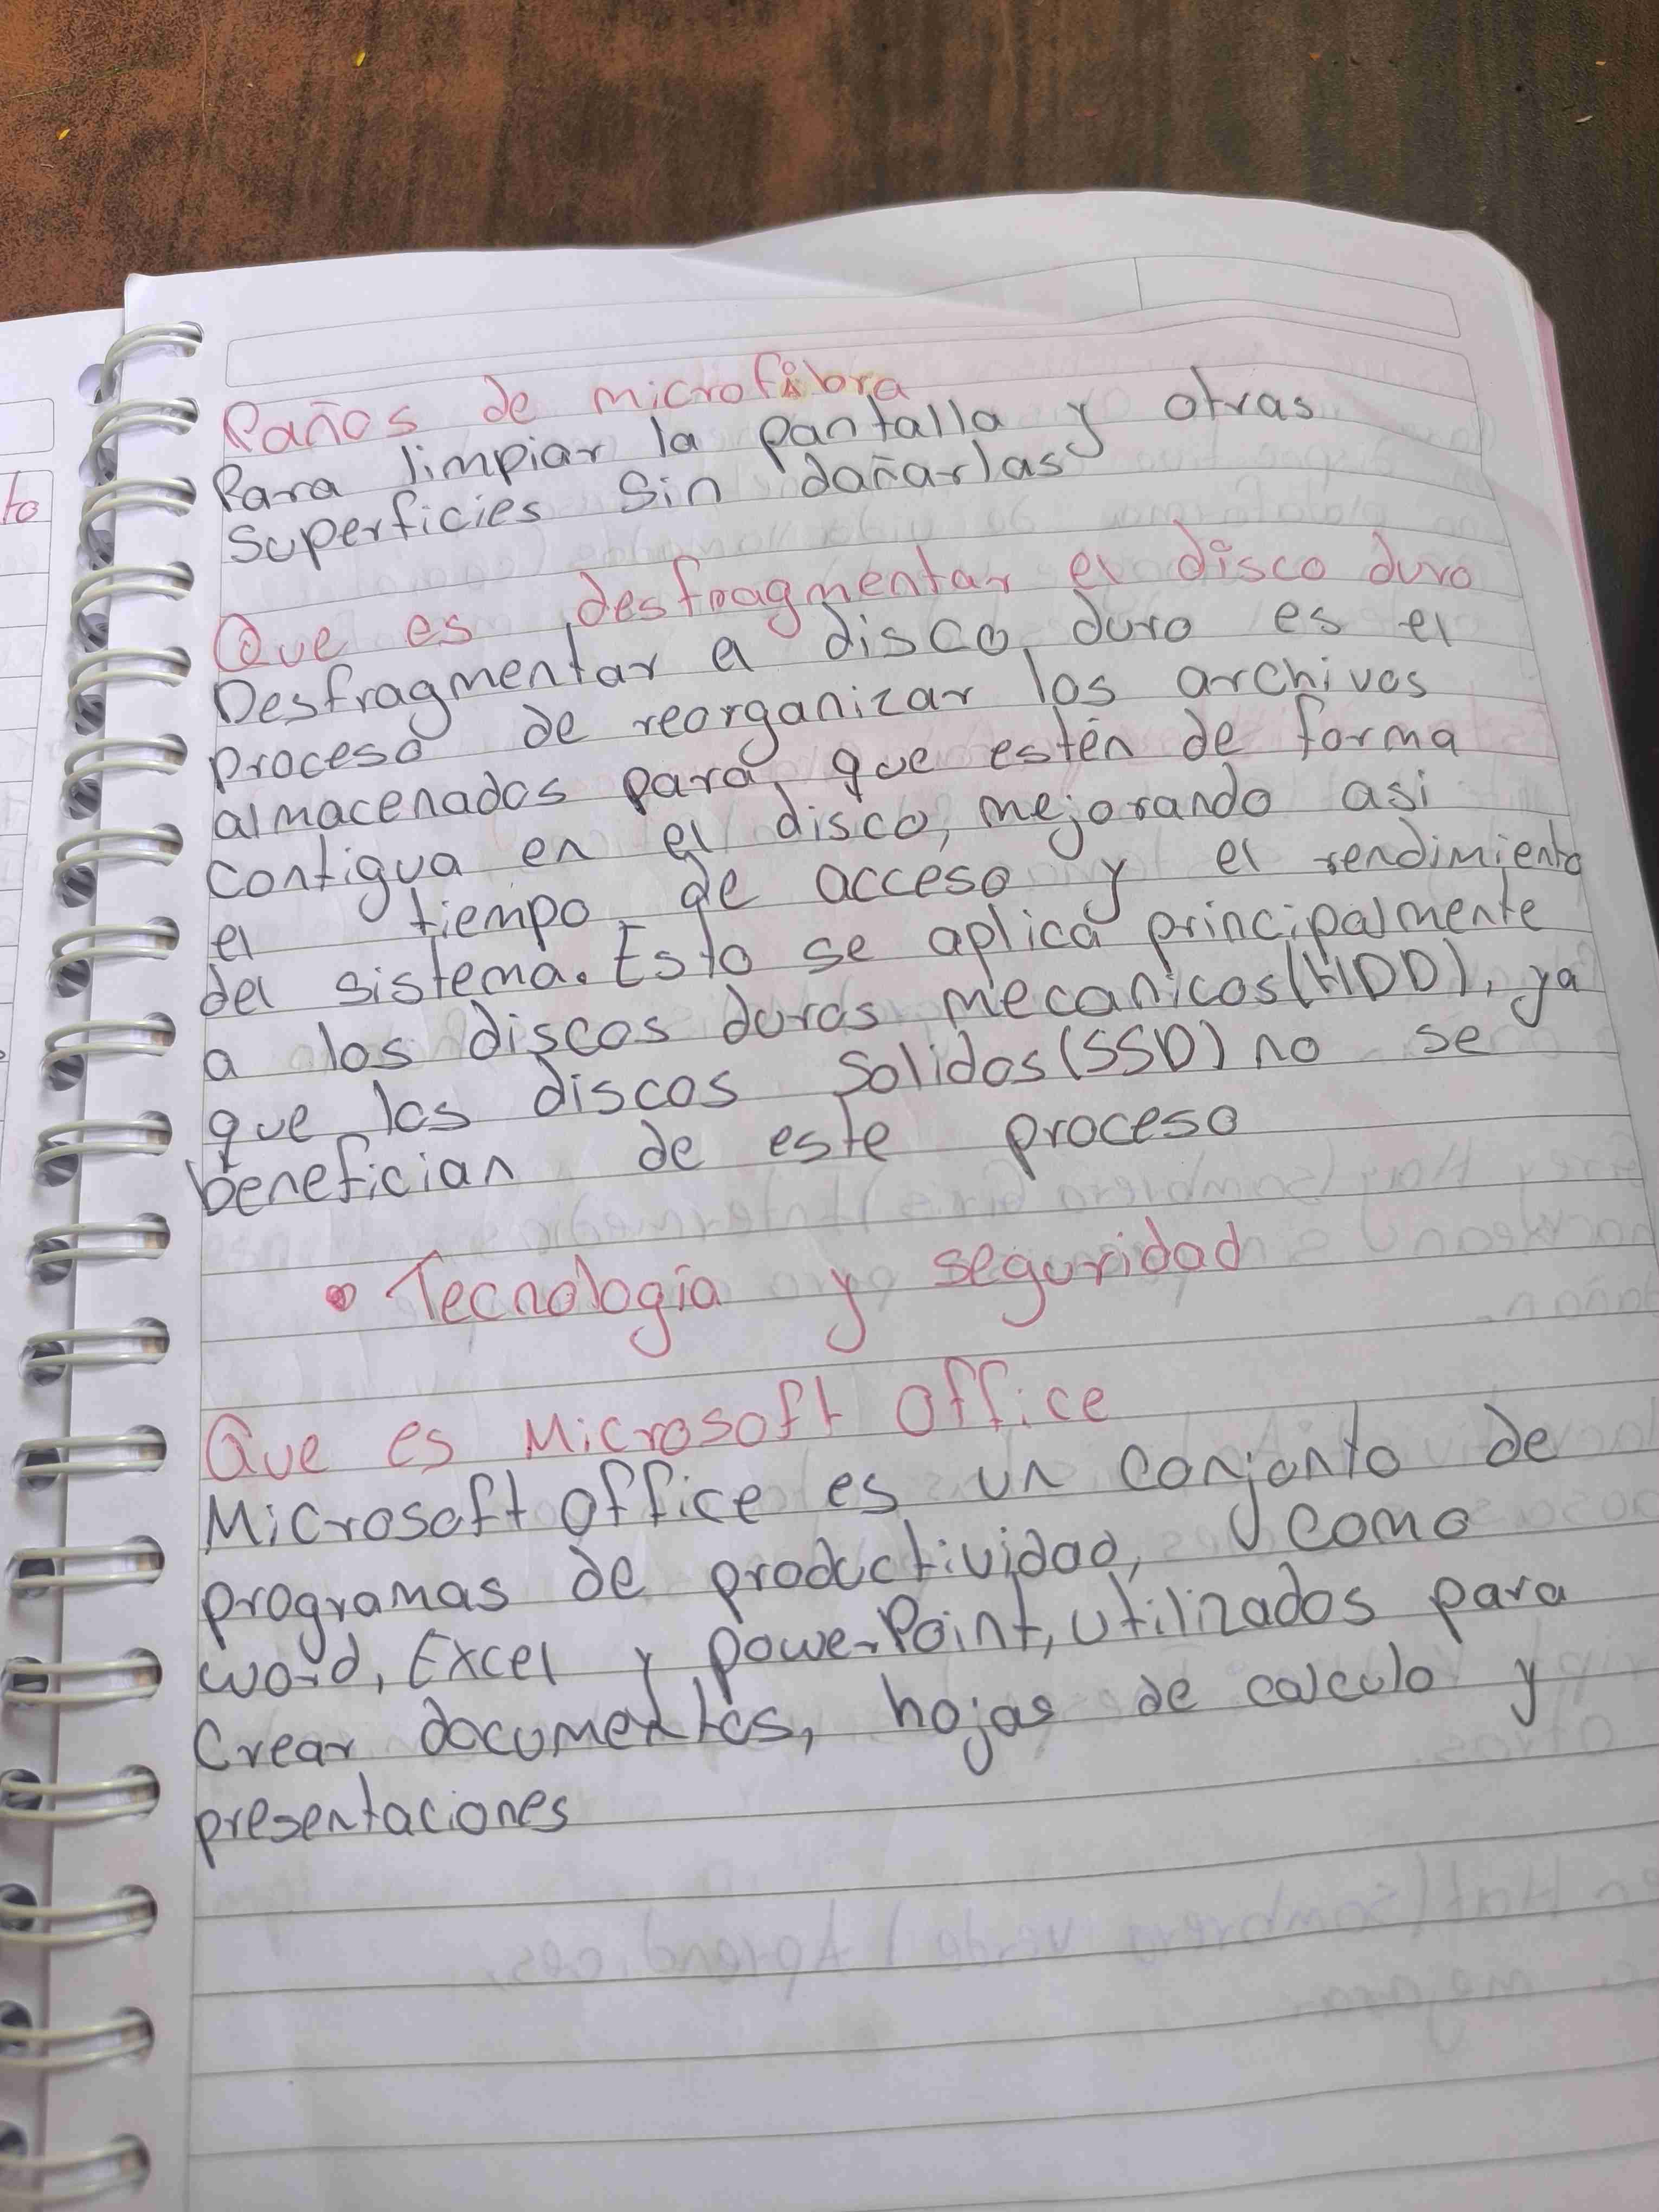 to
Paños de microfibra
Para limpiar la pantalla y otras
Superficies Sin dañarlas
Que es desfragmentar el disco duro
Desfragmentar a disco duro es el
proceso de reorganizar los archivos
almacenados para que estén de forma
contigua en el disco, mejorando asi
el tiempo de acceso y el rendimiento
del sistema. Esto se aplica principalmente
a los discos duros mecanicos (HDD), ya
que los discos Solidos (SSD) no se
benefician de este proceso
• Tecnología y seguridad
Que es Microsoft Office
Microsoft office es un conjunto de
programas de productividad, como
word, Excel y powerPoint, utilizados para
Crear documentos, hojas de calculo y
presentaciones